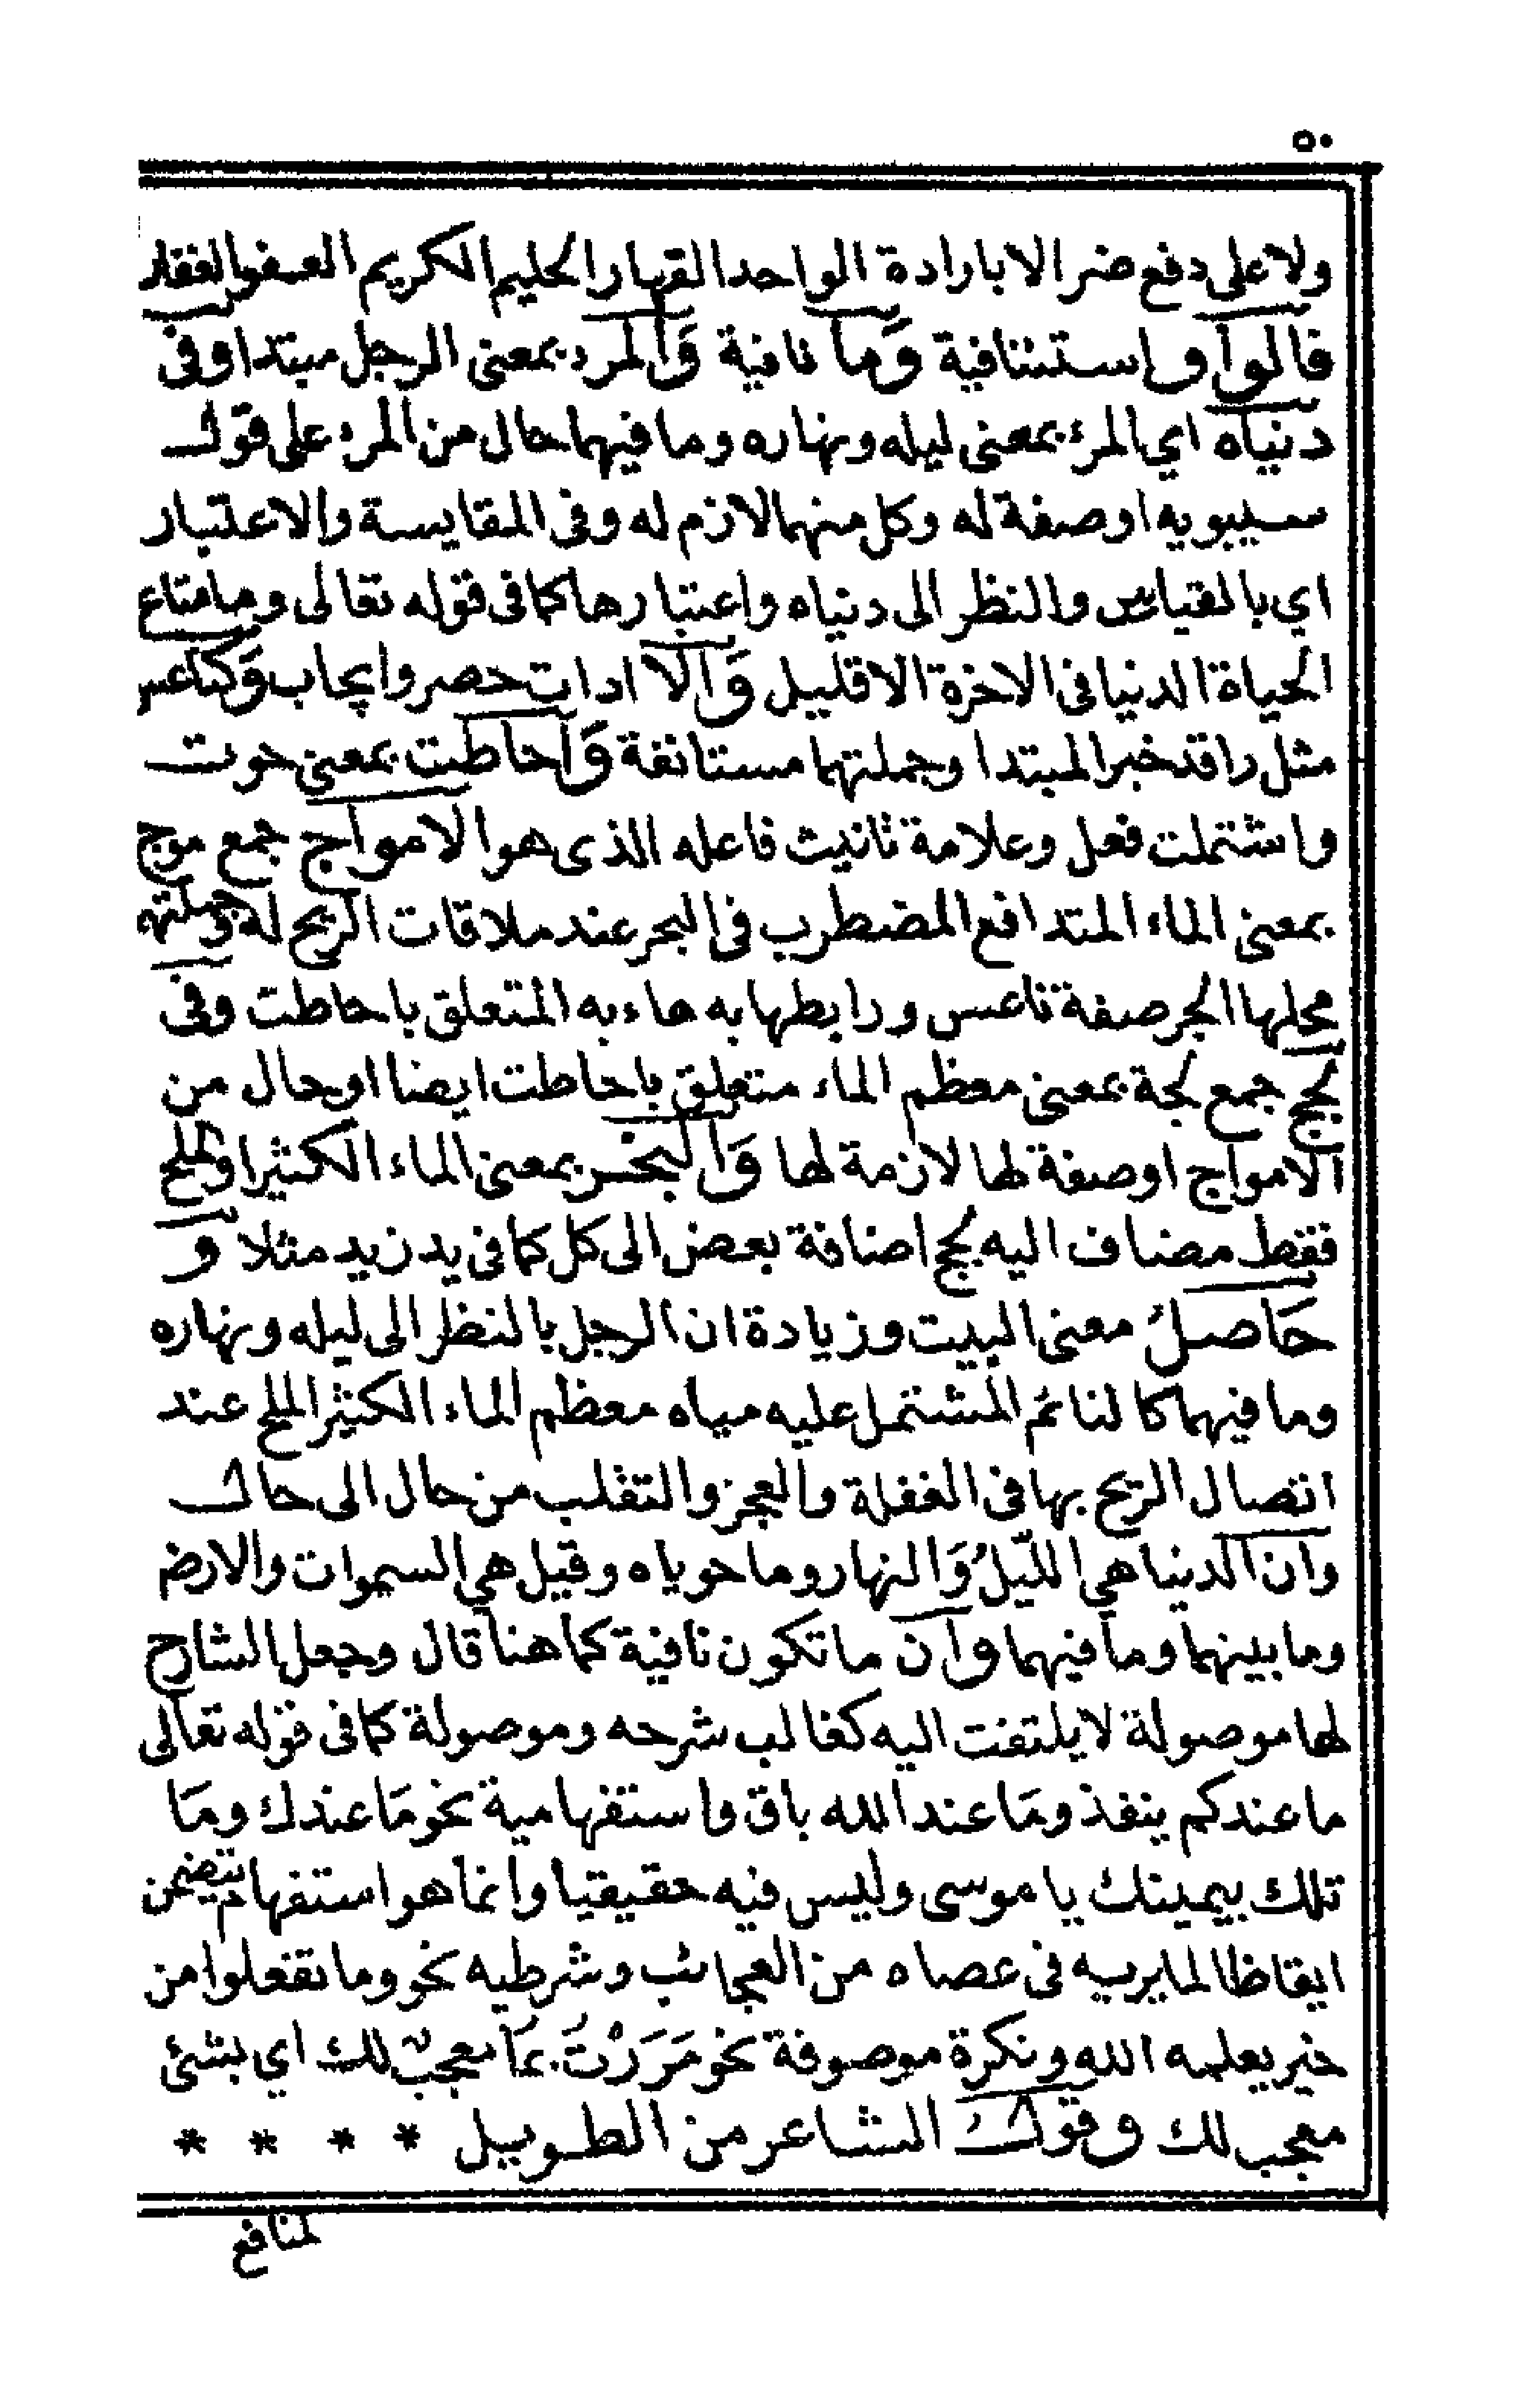 ٥٠
ولا على دفع ضر الا بارادة الواحد القهار الحليم الكريم العفو الغفار
فالواو استئنافية وما نافية والمرء بمعنى الرجل مبتدا وفى
دنياه اي المرء بمعنى ليله ونهاره وما فيهما حال من المرء على قول
سيبويه او صفة له وكل منهما لازم له وفى المقايسة والاعتبار
اي بالقياس والنظر الى دنياه واعتبارها كما فى قوله تعالى وما متاع
الحياة الدنيا فى الاخرة الا قليل والا ادات حصر وايجاب وكناعس
مثل راقد خبر المبتدا وجملتهما مستانفة واحاطت بمعنى حوت
واشتملت فعل وعلامة تانيث فاعله الذى هو الامواج جمع موج
بمعنى الماء المتدافع المضطرب فى البحر عند ملاقات الريح له وجملته
محلها الجر صفة ناعس ورابطها به هاء به المتعلق باحاطت وفى
لجج جمع لجة بمعنى معظم الماء متعلق باحاطت ايضا او حال من
الامواج او صفة لها لازمة لها والبحر بمعنى الماء الكثير او الملح
فقط مضاف اليه لجج اضافة بعض الى كل كما فى يد زيد مثلا و
حاصل معنى البيت وزيادة ان الرجل بالنظر الى ليله ونهاره
وما فيهما كالنائم المشتمل عليه مياه معظم الماء الكثير الملح عند
اتصال الريح بها فى الغفلة والعجز والتقلب من حال الى حال
وان الدنيا هي الليلُ وَالنهار وما حوياه وقيل هي السموات والارض
وما بينهما وما فيهما وان ما تكون نافية كما هنا قال وجعل الشارح
لها موصولة لا يلتفت اليه كغالب شرحه وموصولة كما فى قوله تعالى
ما عندكم ينفذ ومَا عند الله باق واستفهامية نحو مَا عندك ومَا
تلك بيمينك يا موسى وليس فيه حقيقيا وانما هو استفهام يتضمن
ايقاظا لما يريه فى عصاه من العجائب وشرطيه نحو وما تفعلوا من
خير يعلمه الله ونكرة موصوفة نحو مَرَرْتَ بمَا معجبٌ لك اي بشئ
معجب لك وقول الشاعر من الطويل * * * *
لمنافع